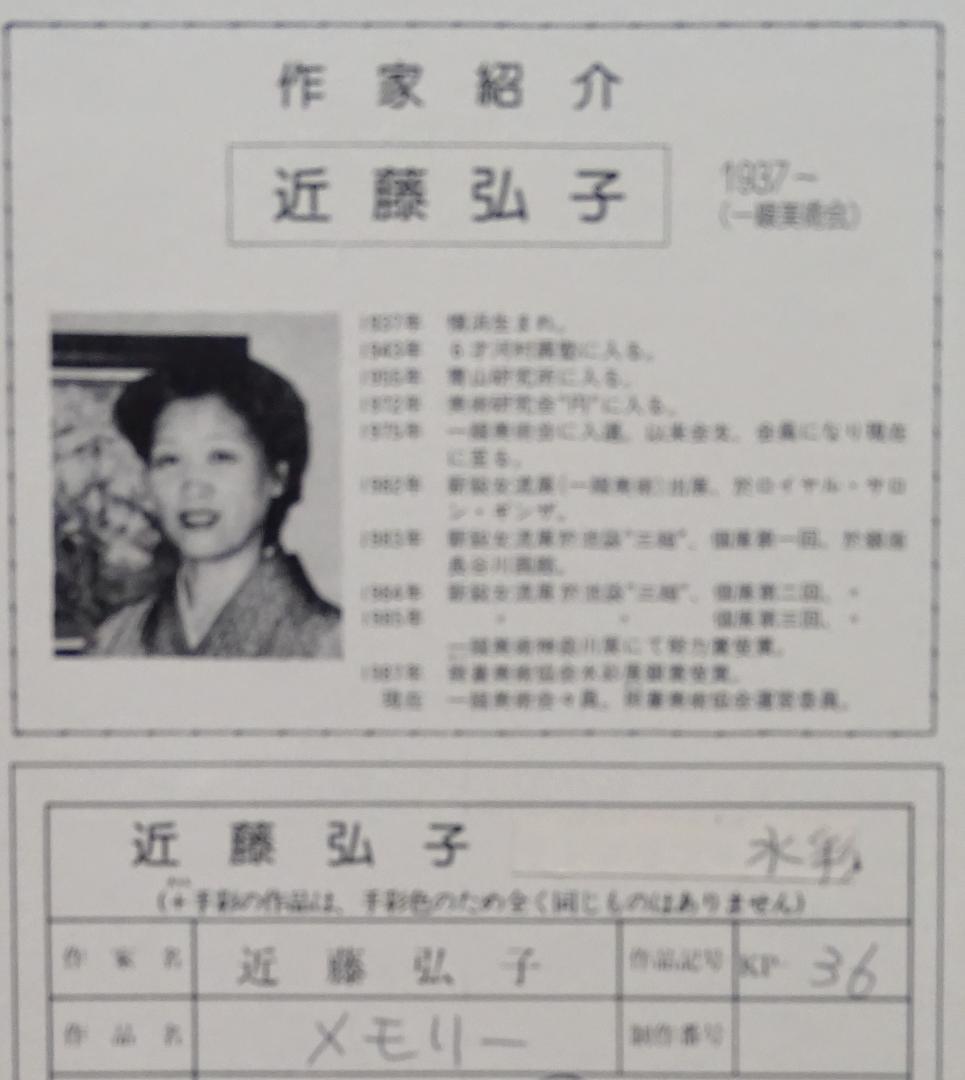 作家紹介
近藤弘子
1937〜
(一線美術会)
1937年 横浜生まれ。
1943年 6才河村画塾に入る。
1955年 青山研究所に入る。
1972年 美術研究会"円"に入る。
1975年 一線美術会に入選、以来会友、会員になり現在
に至る。
1982年 新鋭女流展(一線美術)出展、於ロイヤル・サロ
ン・ギンザ。
1983年 新鋭女流展於池袋"三越"、個展第一回、於銀座
長谷川画廊。
1984年 新鋭女流展於池袋"三越"、個展第二回、〃
1985年 〃 〃 個展第三回、〃
一線美術神奈川展にて努力賞受賞。
1987年 美術協会水彩展 賞受賞。
現在 一線美術会々員、美術協会運営委員。
近藤弘子 水彩
(手彩の作品は、手彩色のため全く同じものはありません)
作家名 近藤弘子 作品記号 KP- 36
作品名 メモリー 制作番号